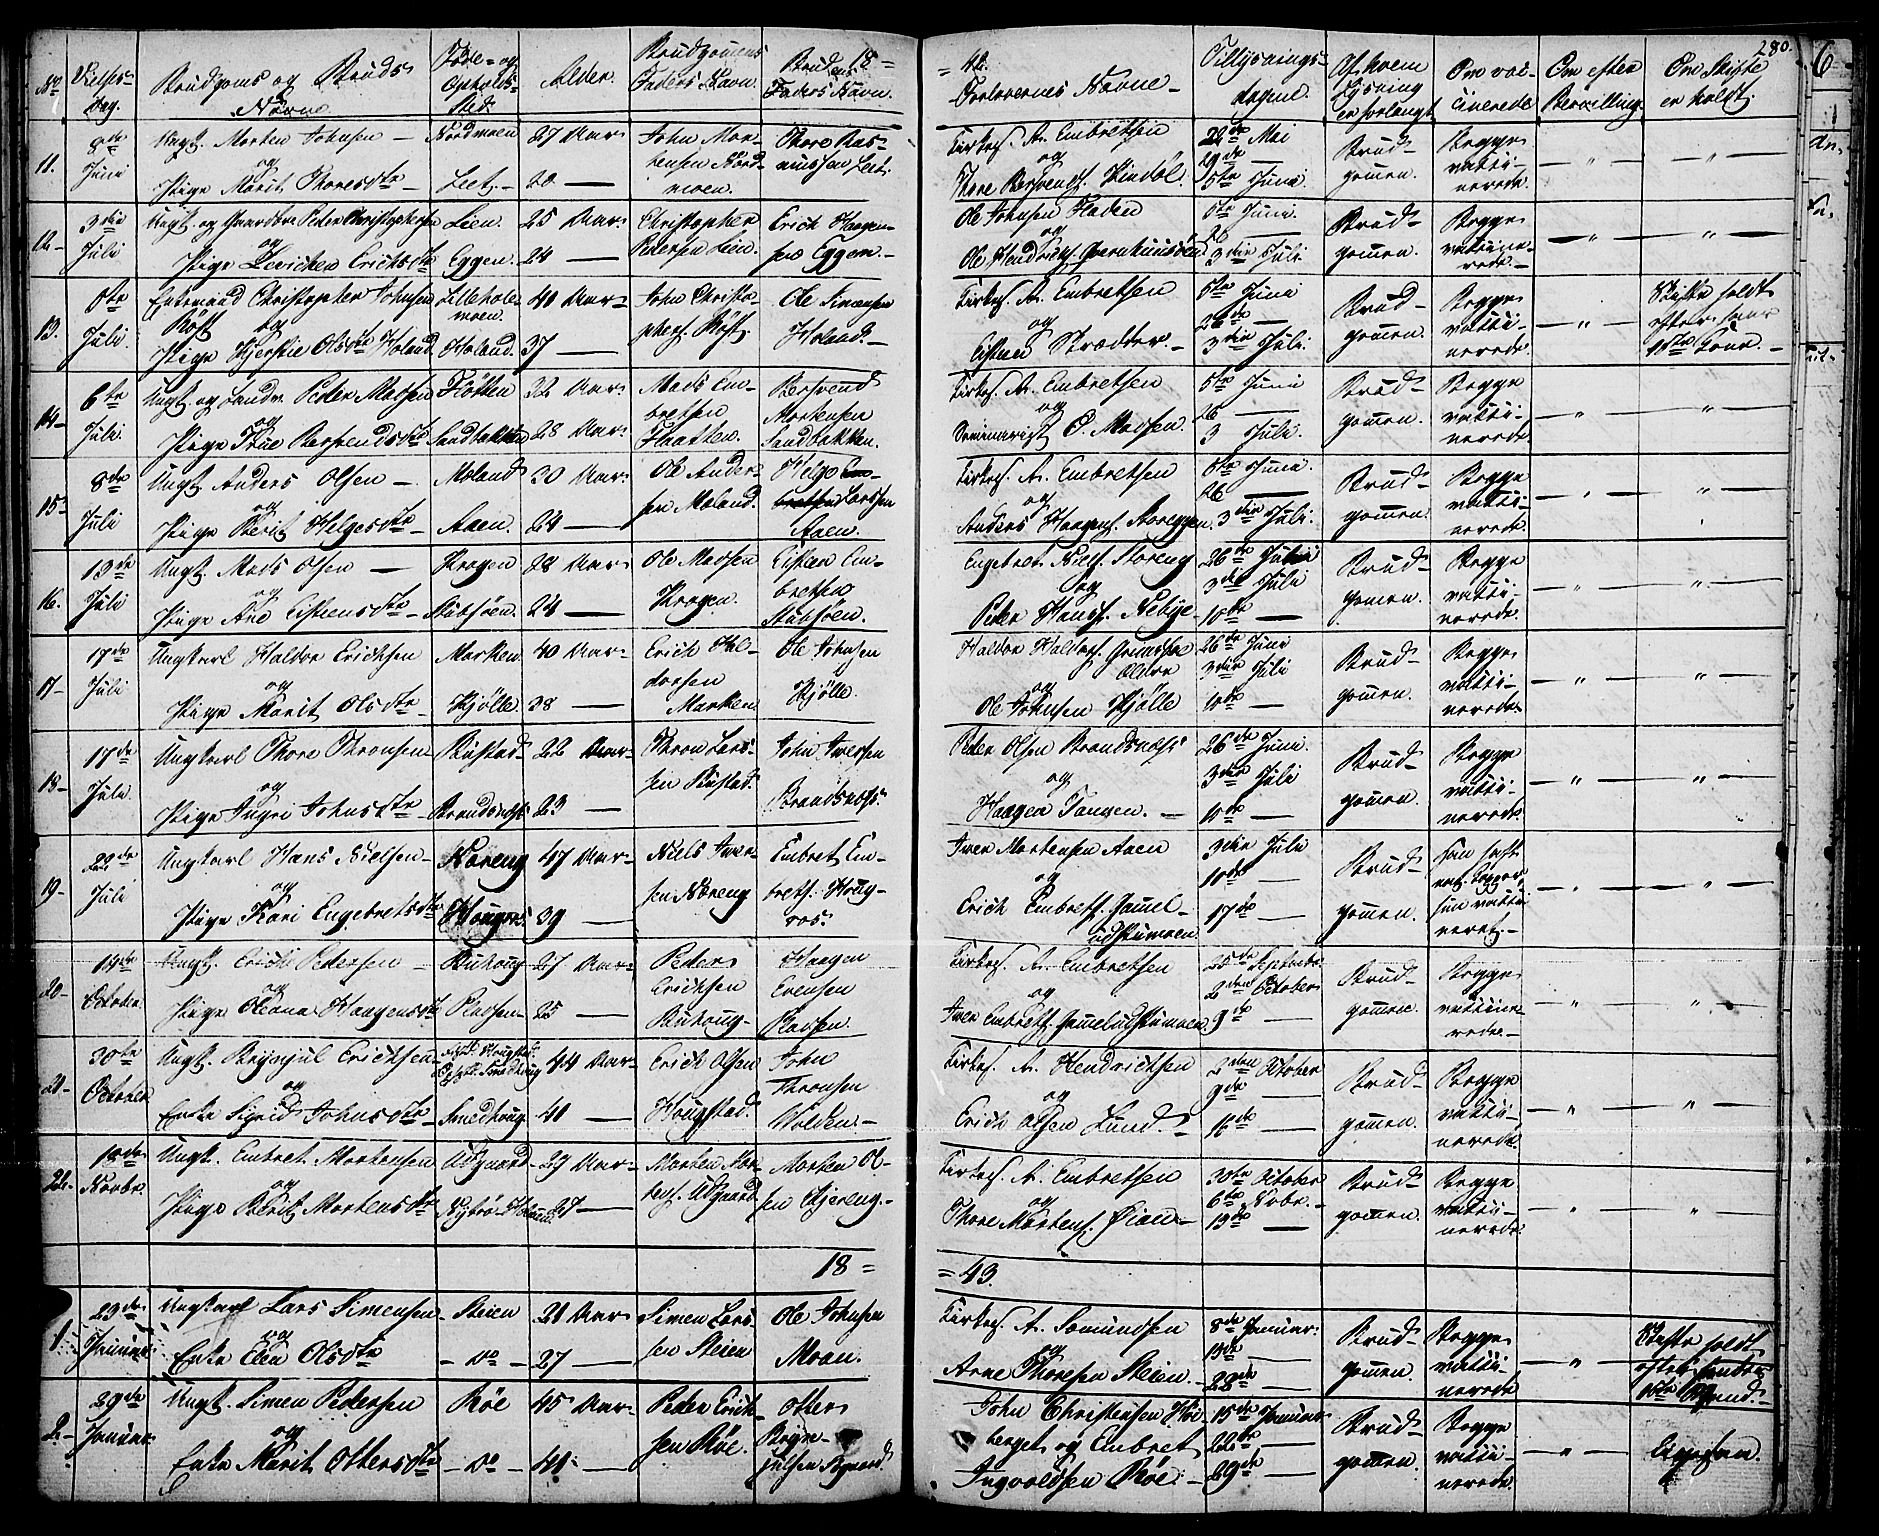 280.
6
No
Vielses-
dag.
Brudgoms og Bruds
Navne
Føde- og
Opholds-
Sted.
Alder.
Brudgomens
Faders Navn.
18=
Brudens
Faders Navn.
=42.
Forlovernes Navne
Tillysnings-
dagene.
Af hvem
Lysning
er forlangt
Om vac-
cinerede
Om efter
Bevilling.
Om Skifte
er holdt.
11.
8de
Juni
Ungk. Morten Johnsen
og
Pige Marit Thoresdtr
Nordmoen
Leet
27 Aar
20
John Mor-
tensen Nord-
moen.
Thore Ras-
mussen Leet.
Kirkes. A. Embretsen
og
Thore Bersvends. Kindøl.
22de Mai
29de
5te Juni
Brud-
gommen.
Begge
vacci-
nerede.
12
3die
Juli
Ungk. og Gaardbr. Peder Christophersen
og
Pige Levicken Erichsdtr
Lien.
Eggen.
25 Aar.
24
Christopher
Pedersen Lien.
Erich Haagen-
sen Eggen.
Ole Johnsen Fladen
og
Ole Hendrichs.
5te Juni
26
3die Juli
Brud-
gommen.
Begge
vaccine-
rede.
13.
Juli.
Enkemand Christopher Johnsen
Røst og
Pige Kjerstie Olsdtr Holand
Lillehole-
moen.
Holand.
41 Aar
37
John Christo-
phers. Røst.
Ole Simensen
Holand.
Kirkes. A. Embretsen
og
5te Juni
26de
3die Juli.
Brud-
gommen.
Begge
vacci-
nerede.
Skifte holdt
efter hans
1ste Kone.
14
6te
Juli.
Ungk. og Landv. Peder Madsen
og
Pige Ane Bersvendsdtr
Flotten
Sandbakken
32 Aar
28 Aar.
Mads Em-
bretsen
Flaatten.
Bersvend
Mortensen
Sandbakken.
Kirkes. A. Embretsen
og
Seminarist O. Madsen.
5te Juni
26
3 Juli.
Brud-
gommen.
Begge
vacci-
nerede.
15
8de
Juli
Ungk. Anders Olsen
og
Pige Berit Helgesdtr
Moland
Aaen.
30 Aar.
24
Ole Ander-
sen Moland.
Helge
Larsen
Aaen.
Kirkes. A. Embretsen
og
Anders Haagens. Storeggen.
5te Juni.
26
3die Juli.
Brud-
gommen.
Begge
vacci-
nerede.
16.
13de
Juli
Ungk. Mads Olsen
og
Pige Ane Estensdtr
Krogen
Stubsøen.
28 Aar
24
Ole Madsen
Krogen.
Esten Em-
bretsen
Stubsøen.
Engebret Niels. Noreng
og
Peder Hans. Nebye
26de Juni
3die Juli
10de
Brud-
gommen.
Begge
vacci-
nerede.
17
17de
Juli
Ungkarl Haldor Erichsen
og
Pige Marit Olsdtr
Marken
Kjølle
40 Aar
38
Erich Hal-
dorsen
Marken
Ole Johnsen
Kjølle.
Haldor Haldors.
og
Ole Johnsen Kjølle
26de Juni
3die Juli
10de
Brud-
gommen.
Begge
vacci-
nerede.
18
17de
Juli.
Ungkarl Thore Thronsen
og
Pige Ingri Johnsdtr
Bustad
Brandsnæs
22 Aar
23
Thron Lars-
sen Bustad.
John Iversen
Brandsnæs.
Peder Olsen Brandsnæs
og
Haagen Tangen.
26de Juni
3die Juli
10de
Brud-
gommen.
Begge
vacci-
nerede.
19
22de
Juli
Ungkarl Hans Nielsen
og
Pige Kari Engebretsdtr
Noreng
Hougros
47 Aar
39
Niels Iver-
sen Noreng
Embret Em-
brets. Houg-
ros.
Iver Mortensen Aaen
og
Erich Embrets. Gamel-
udstumoen
3die Juli
10de
17de
Brud-
gommen.
20
14de
October
Ungk. Erich Pedersen
og
Pige Oleana Haagensdtr
Buhoug
Pladsen
27 Aar
25
Peder
Erichsen
Buhoug
Haagen
Evensen
Pladsen.
Kirkes. A. Embretsen
og
Iver Embrets. Gameludstumoen
25de Septembr.
2den October
9de
Brud-
gommen.
Begge
vaccine-
rede.
21
30te
October
Ungk. Brynjul Erichsen
og
Enke Sigrid Johnsdtr
Smedhoug
44 Aar
41
Erich Olsen
Hougstad.
John
Thronsen
Volden
Kirkes. A. Hendrichsen
og
Erich Olsen Lund.
2den October
9de
16de
Brud-
gommen.
Begge
vacci-
nerede.
22.
18de
Novbr.
Ungk. Embret Mortensen
og
Pige Berit Mortensdtr
Udgaard
27 Aar
27
Morten Mor-
tens. Udgaard.
Morten Ol-
sen Kjereng
Kirkes. A. Embretsen
og
Thore Mortens. Øian
30te October
6te Novbr.
13de
Brud-
gommen.
Begge
vacci-
nerede.
18=
=43.
1.
23de
Januar
Ungkarl Lars Simensen
og
Enke Elen Olsdtr
Steien
do
21 Aar
27
Simen Lars-
sen Steien
Ole Johnsen
Moan.
Kirkes. A. Somundsen
og
Arne Thoresen Steien
8de Januar.
15de
22de
Brud-
gommen.
Begge
vacci-
nerede.
Skifte holdt
efter hendes
1ste Mand.
2
29de
Januar
Ungk. Simen Pedersen
og
Enke Marit Ottersdtr
Røe
do
45 Aar
41
Peder Erich-
sen Røe.
Otter
Bryn-
julsen
John Christensen Høi-
berget og Embret
Ingvoldsen Røe
15de Januar
22de
29de
Brud-
gommen.
Begge
vacci-
nerede.
Ligesaa.